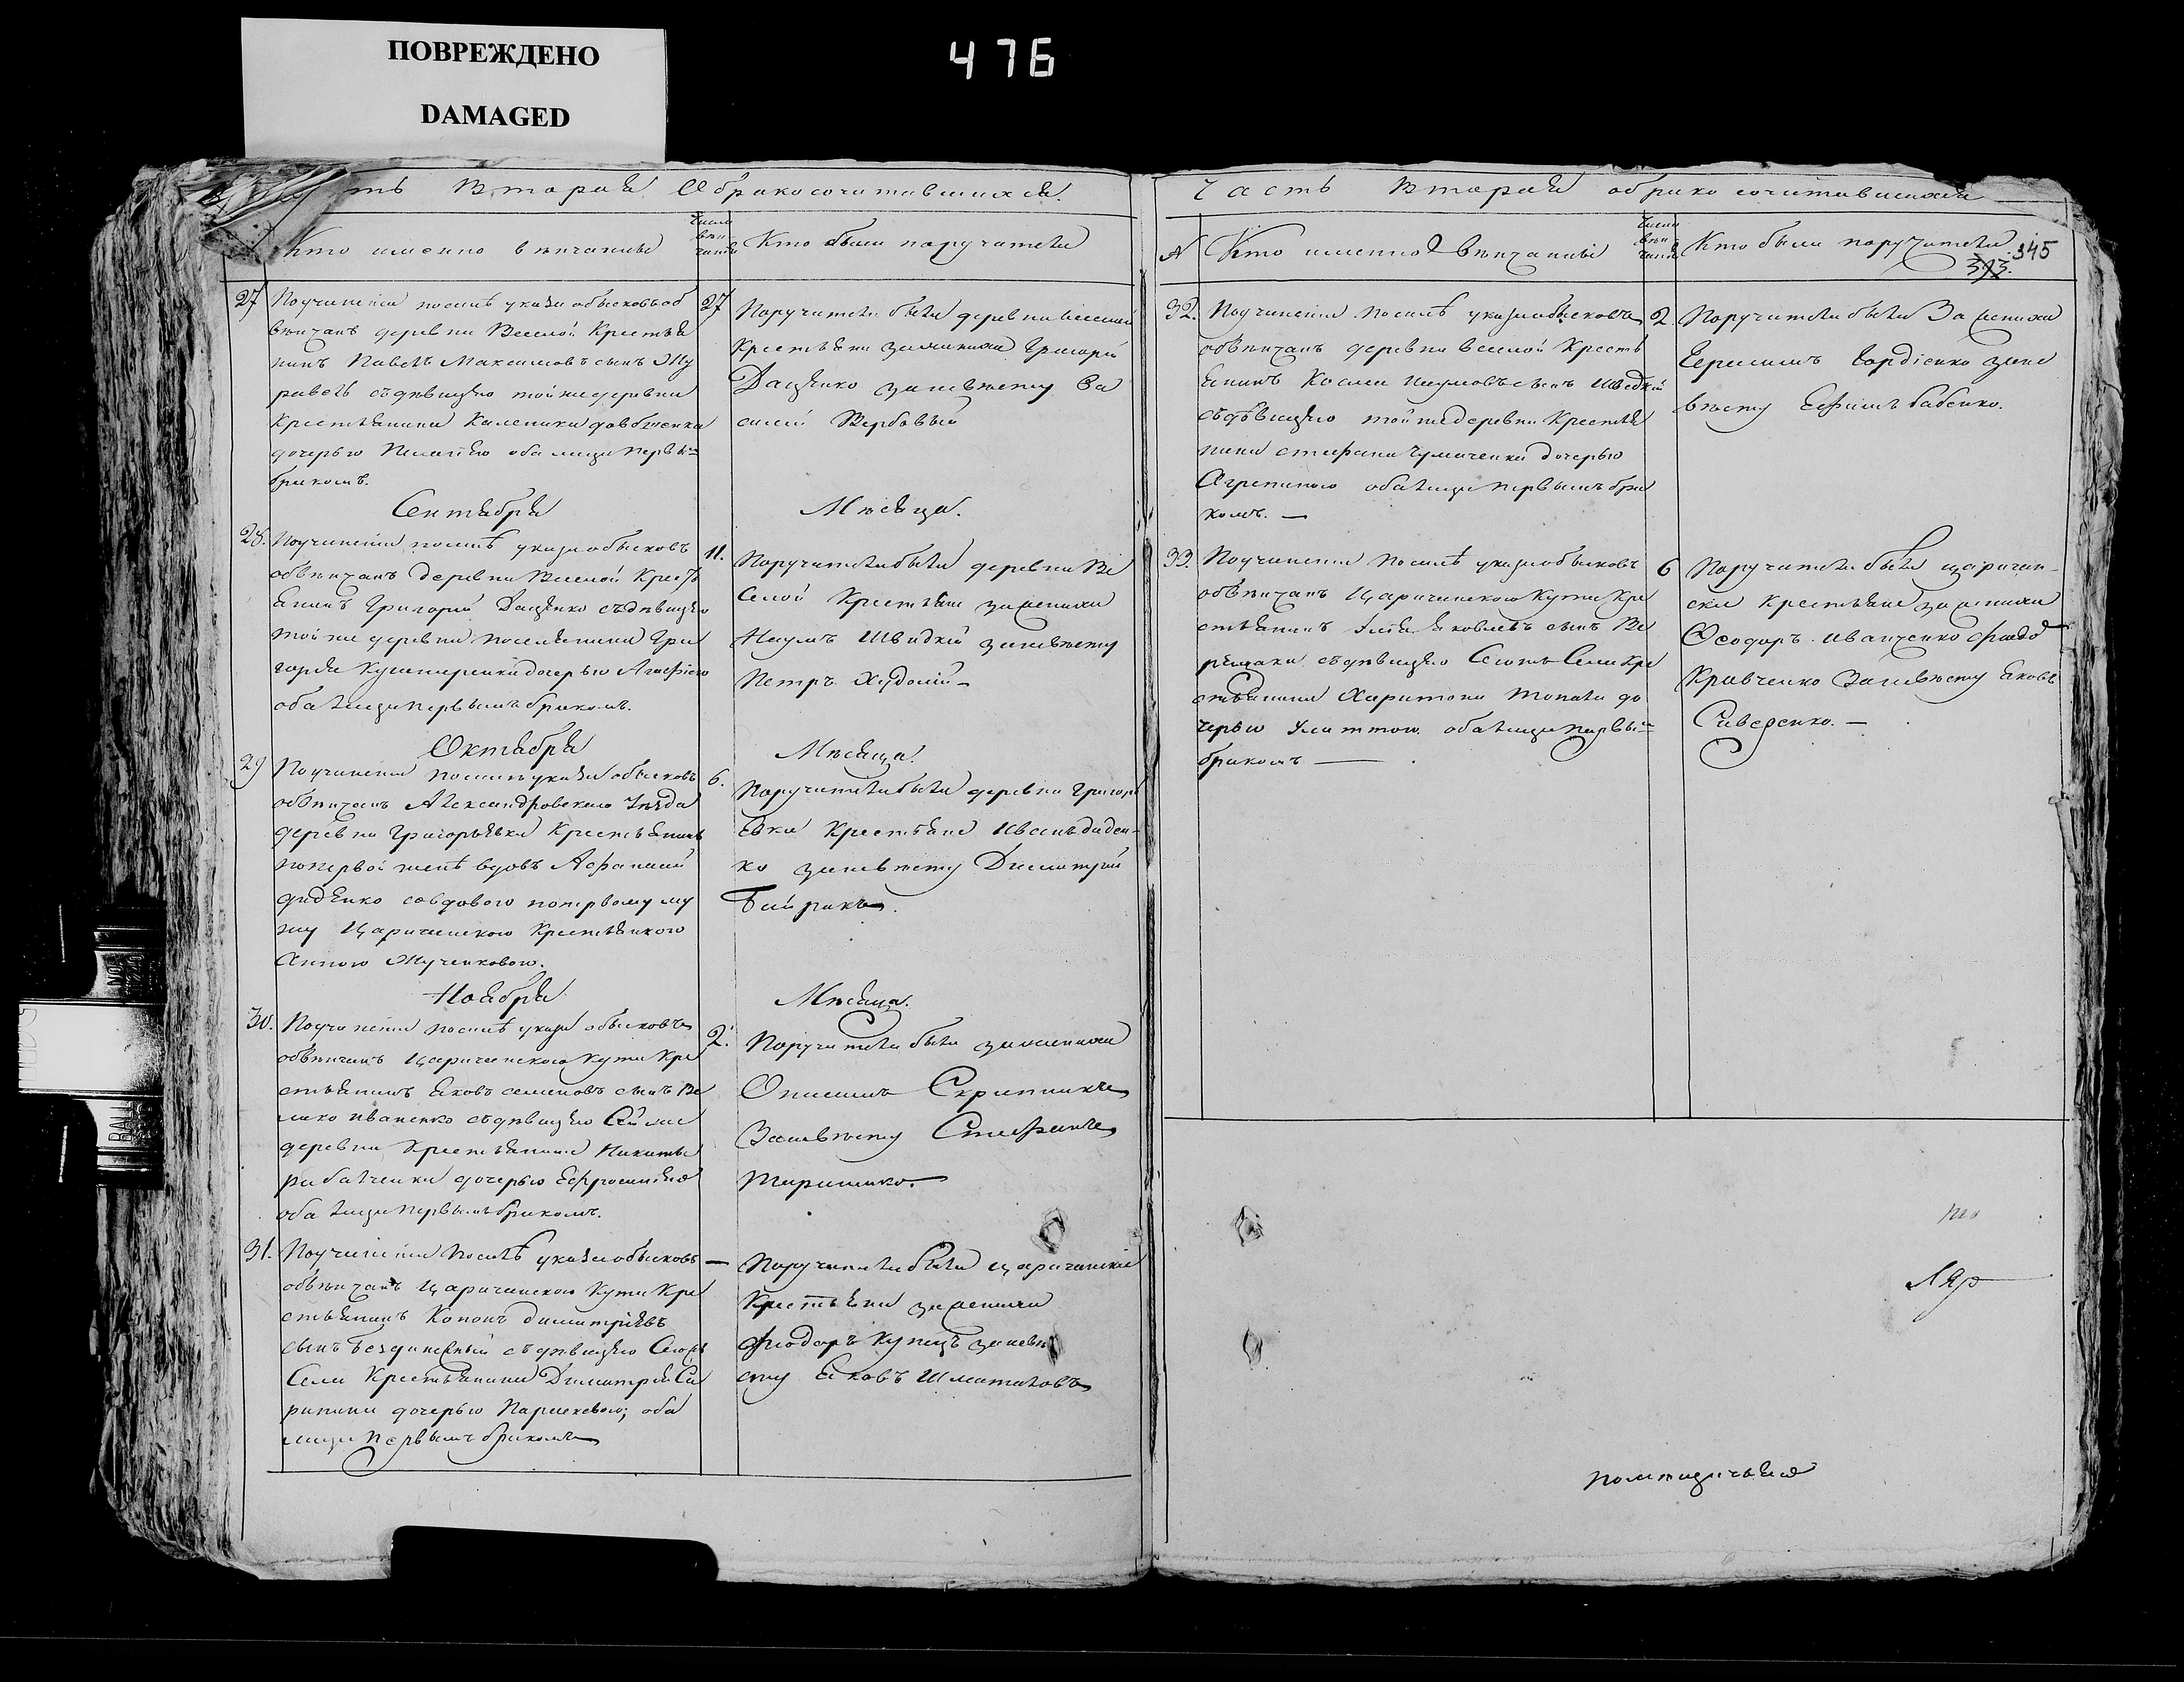 ПОВРЕЖДЕНО
DAMAGED
476
ть Вторая О бракосочитавшихся.
Кто именно венчаны
Число вен чанія
Кто были поручители
27 Поучиненіи посилѣ указа обысковъ об
27
венчанъ деревни Веселой Крестья
нинъ Павелъ Максимовъ сынъ Жу
равель съ девицею тойже деревни
Крестьянина Каленика довбненка
дочерью Пелагіею оба лица первы=
бракомъ.
Поручители были деревни веселой
Крестьяни зажениха Григорій
Даценко заневѣсту Ва
силій Вербовый
Сентября
Мѣсяца.
28. Поучиненіи посилѣ указа обысковъ
11.
обвенчанъ деревни Веселой Крестъ
янинъ Григорій Даценко съ девицею
тойже деревни поселянина Гри
горія Кушниренка дочерью Агафіею
оба лица первымъ бракомъ.
Поручители были деревни Ве
селой Крестьяне зажениха
Наумъ Швидкій заневѣсту
Петръ Худолій
Октября
Мѣсяца.
29 Поучиненіи посилѣ указа обысковъ
6.
обвенчанъ Александровскаго Уезда
деревни Григорьевки Крестьянинъ
попервой женѣ вдовъ Афанасій
диденко совдовою попервому му
жу Царичанскою Крестьянкою
Анною Жученковою.
Поручители были деревни Григорь
евки Крестьяне Иванъ диден-
ко заневѣсту Димитрій
Байракъ.
Ноября
Мѣсяца.
30. Поучиненіи посилѣ указа обысковъ
2.
обвенчанъ Царичанского Кута Кре
стьянинъ Яковъ семеновъ сынъ Ве
лико иваненко съ девицею
деревни Крестьянина Никиты
рибалченка дочерью Ефросиніею
оба лица первымъ бракомъ.
Поручители были зажениха
Онисимъ Скрипникъ
Заневѣсту Стефанъ
31. Поучиненіи посилѣ указа обысковъ —
обвенчанъ Царичанского Кута Кре
стьянинъ Кононъ димитріевъ
сынъ съ девицею Сегожъ
Села Крестьянина Димитрія Са
рапина дочерью Параскевою; оба
лица первымъ бракомъ
Поручители были царичанскіе
Крестьяни зажениха
Фиодоръ Купецъ заневѣ
сту Яковъ Шматковъ
Часть Вторая обрако сочитавшихся
345
№ Кто именно венчанныі
Число вен чанія
Кто были поручители
313.
32. Поучиненіи посилѣ указа обысковъ
2
обвенчанъ деревни веселой Кресть
янинъ Косма наумовъ сынъ Шведкій
съ девицею тойже деревни Крестья
нина стефана Чумаченка дочерью
Агрепиною оба лица первымъ бра
комъ. —
Поручители были За жениха
Герасимъ Гордіенко зане
вѣсту Ефимъ бабенко.
33. Поучиненіи посилѣ указа обысковъ
6
обвенчанъ Царичанского Кута Кре
стьянинъ яковлевъ сынъ Ве
ремака съ девицею Сегожъ Села Кре
стьянина Харитона Топала до
черью Улиттою оба лица первы=
бракомъ —
Поручители были царичан-
ски Крестьяне зажениха
Феодоръ иванченко
Кравченко Заневѣсту Яковъ
Сиверенко. —